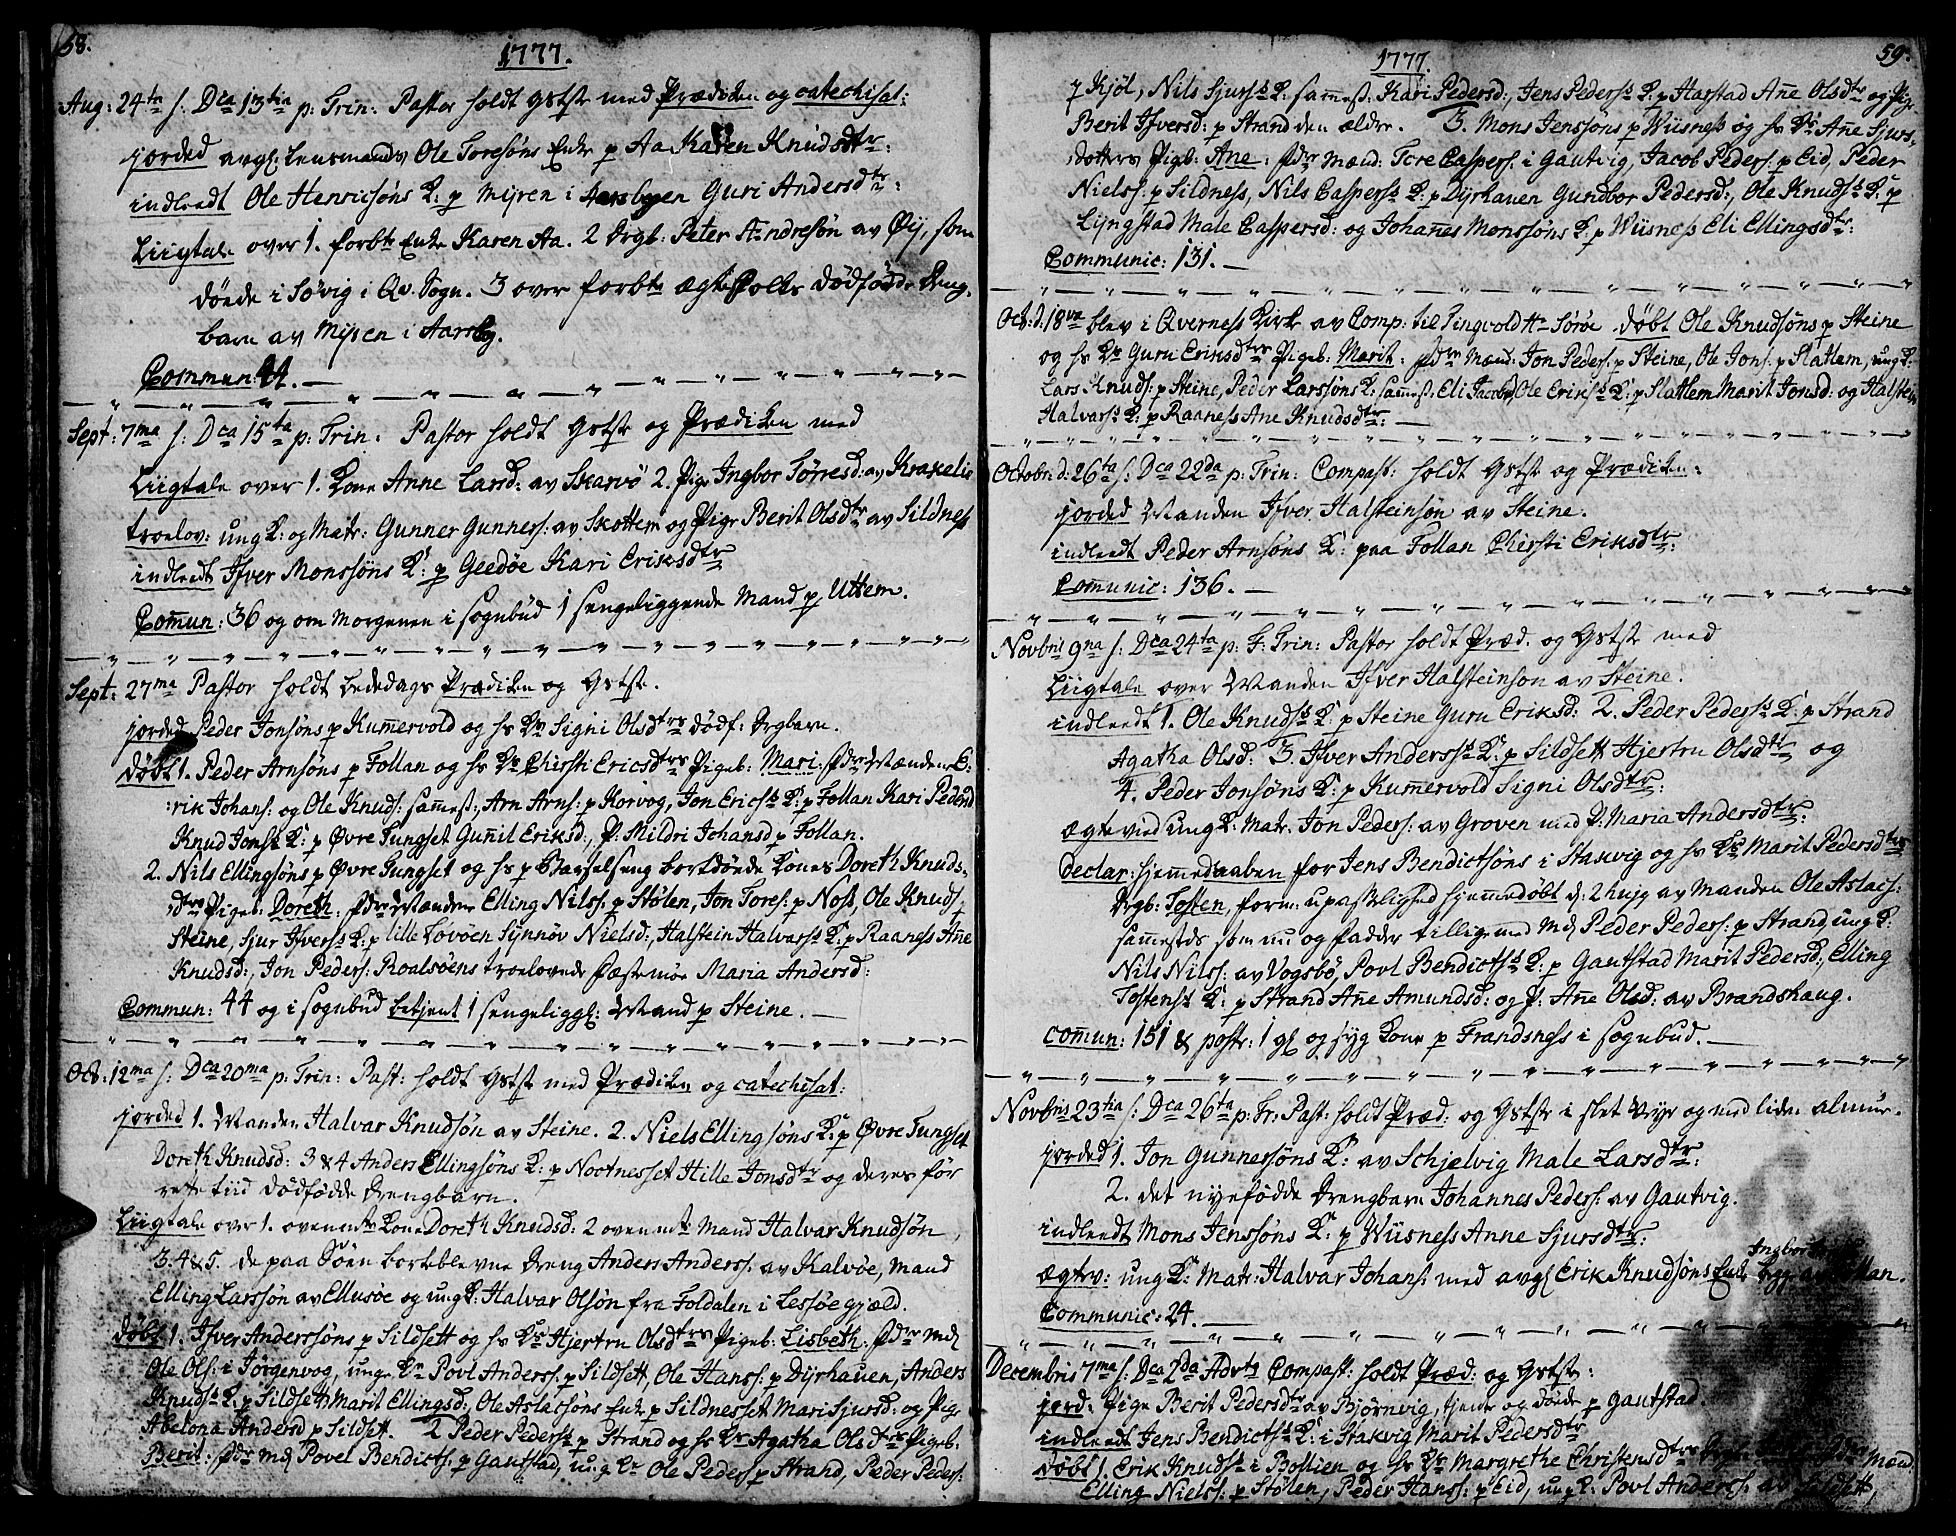 58.
1777.
Aug: 24ta s: Dca 13tia p: Trin: Pastor holdt Gstste med Prædiken og catechisat:
jorded avgl: Lensmands Ole Toresøns Enke p Aa Karen Knudsdtr:
indleedt Ole Henricsøns K: p Myren i Aarsbyen Guri Andersdtr:
Liigtale over 1. forbte Enke Karen Aa. 2 Drgb: Peter Andresøn av Øy, som
döede i Sövig i Qv. Sogn. 3 over forbte ægte Folks dödfödde Dreng,
barn av Myren i Aarsby.
Commun: 44.
Sept: 7ma s: Dca 15ta p: Trin: Pastor holdt Gstste og Prædiken med
Liigtale over 1. Kone Anne Larsd: av Skarvö 2. Pige Ingbor Törresd: av Krakelie
troelov: ung K: og Matr: Gunner Gunners: av Skottem og Pige Berit Olsdtr av Sildness
indleedt Ifver Monssöns K: p Geedöe Kari Eriksdtr
Comun: 36 og om Morgenen i sognbud 1 sengeliggende Mand p Uttem.
Sept: 27ma Pastor holdt bededags Prædiken og Gstste.
jorded Peder Jonsöns p Kumervold og hs Ke Signi Olsdtrs dödf: Drgbarn.
döbt 1. Peder Arnsöns p Follan og hs Ke Chirsti Ericsdtrs Pigeb: Mari: fdre Mændene E:
rik Johans: og Ole Knuds: sammest:, Arn Arns: p Korvog, Jon Ericss K: p Follan Kari Pedersd
Knud Jonss K: p Övre Tungset Gunnil Eriksd:, P: Mildri Johansd p Follan.
2. Nils Ellingsöns p Övre Tungset og hs p Barselseng bortdöede Kones Doreth Knuds,
dtrs Pigeb: Doreth: fdre Mændene Elling Nilss: p Stölen, Jon Tores: p Nost, Ole Knuds p
Steine, Sjur Ifverss K: p lille Fovöen Synnöv Nielsd:, Halstein Halvarss K: p Raaness Anne
Knudsd:, Jon Peders: Roalsöens troelovede Fæstemöe Maria Andersd:
Commun: 44 og i sognbud betjent 1 sengeliggl: Mand p Steine.
Oct: 12ma s: Dca 20ma p: Trin: Past: holdt Gstste med Prædiken og catechisat:
jorded 1. Manden Halvar Knudsön av Steine. 2. Niels Ellingsöns K: p Övre Tungset
Doreth Knudsd: 3 & 4 Anders Ellingsöns K: p Nootnesset Hille Jonsdtr og deres för
rette tiid dödfödde Drengbarn.
Liigtale over 1. ovenmte Kone Doreth Knudsd: 2 ovenmte Mand Halvar Knudsön,
3. 4 & 5. de paa Söen bortblevne Dreng Anders Anderss: av Kalvöe, Mand
Elling Larssön av Ellusöe og ung K: Halvar Olsön fra Foldalen i Lessöe gjæld.
döbt 1. Ifver Anderssöns p Sildsett og hs Ke Hjertru Olsdtrs Pigeb: Lisbeth: fdre Md
Ole Ols: i Jörgenvog, unge Kn Povl Anderss: p Sildsett, Ole Hanss: p Dyrhauen, Anders
Knudss K: p Sildsett Marit Ellingsd:, Ole Aslacsöns Enke p Sildnesset Mari Sjursd: og Pige
Abelona Andersd p Sildset. 2 Peder Pederss p Strand og hs Ke Agatha Olsdtrs Pigeb:
Berit: fdre Md Povel Bendicts: p Gautstad, ung Kn Ole Peders p Strand, Peder Peders:
1777.
59.
p Kjöl, Nils Sjurss K: sammest: Kari Pedersd:, Jens Pederss K: p Harstad Anne Olsdtr og Pige
Berit Ifversd: p Strand den ældre. 3. Mons Jenssöns p Wiisness og hs Ke Anne Sjurs,
dotters Pigeb: Ane: fdre Mænd: Tore Caspers: i Gautvig, Jacob Peders: p Eid, Peder
Nielss: p Sildness, Nils Casperss K: p Dyrhauen Gundbor Pedersd:, Ole Knudss K: p
Lyngstad Male Caspersd: og Johannes Monssöns K: p Wiisness Eli Ellingsdtr:
Communic: 131.
Oct: d: 18va blev i Qverness Kirke av Comp: til Tingvold Hr Söröe döbt Ole Knudsöns p Steine
og hs Ke Guru Eriksdtrs Pigeb: Marit: fdre Mænd: Jon Peders: p Steine, Ole Jons: p Slatlem, ung K:
Lars Knuds: p Steine, Peder Larssöns K: sammest: Eli Jacobsd, Ole Erikss K: p Slatlem Marit Jonsd: og Halsten
Halvarss K: p Raaness Ane Knudsdtr:
Octobr: d: 26ta s: Dca 22da p: Trin: Compast: holdt Gstste og Prædiken:
jorded Manden Ifver Halsteinsön av Steine.
indleedt Peder Arnsöns K: paa Follan Chirsti Eriksdtr:
Comunic: 136.
Novbris 9na s: Dca 24ta p: F: Trin: Pastor holdt Præd. og Gstste med
Liigtale over Manden Ifver Halsteinson av Steine.
indleedt 1. Ole Knudss K: p Steine Guru Eriksd: 2. Peder Pederss K: p Strand
Agatha Olsd: 3. Ifver Anderss K: p Sildsett Hjertru Olsdtr og
4. Peder Jonsöns K: p Kumervold Signi Olsdtr:
Ægtevied ung K: Matr: Jon Peders: av Groven med P: Maria Andersdtr:
declar: hjemedaaben for Jens Bendictsöns i Stakvig og hs Ke Marit Pedersdtrs
Drgb: Tosten, form: upasselighed hjemmedöbt d: 2 huj: av Manden Ole Aslacs:
sammestds som nu og fadder tilligemed Md Peder Peders: p Strand, ung K:
Nils Nilss: av Vogsbö, Povl Bendictss K: p Gautstad Marit Pedersd:, Elling
Tostenss K: p Strand Ane Amundsd: og P: Ane Olsd: av Brandshaug.
comun: 151 & postr: 1 gl og syg Kone p Frandsness i sognbud.
Novbris 23tia s: Dca 26ta p: Tr: Past: holdt Præd: og Gstste i slet Vejr og med liden almue.
jorded 1. Jon Gunnersöns K: av Schjelvig Male Larsdtr:
2. det nyefödde Drengbarn Johannes Peders: av Gautvig.
indleedt Mons Jenssöns K: p Wiisness Anne Sjursdtr:
Ægtev: ung K: Matr: Halvar Johans: med avgl Erik Knudsöns Enke Ingbor av Follan.
Communic: 24.
Decembris 7ma s: Dca 2da Advts Compast: holdt Præd: og Gstste:
jord: Pige Berit Pedersdtr av Björnvig, tjente og döde p Gautstad.
indleedt Jens Bendictss K: i Stakvig Marit Pedersdtr
döbt 1. Erik Knudss i Bollien og hs Ke Margrethe Christensdtrs Mænd
Elling Nielss: p Stölen, Peder Hanss: p Eid, ung K: Povl Anderss: av Sildsett,